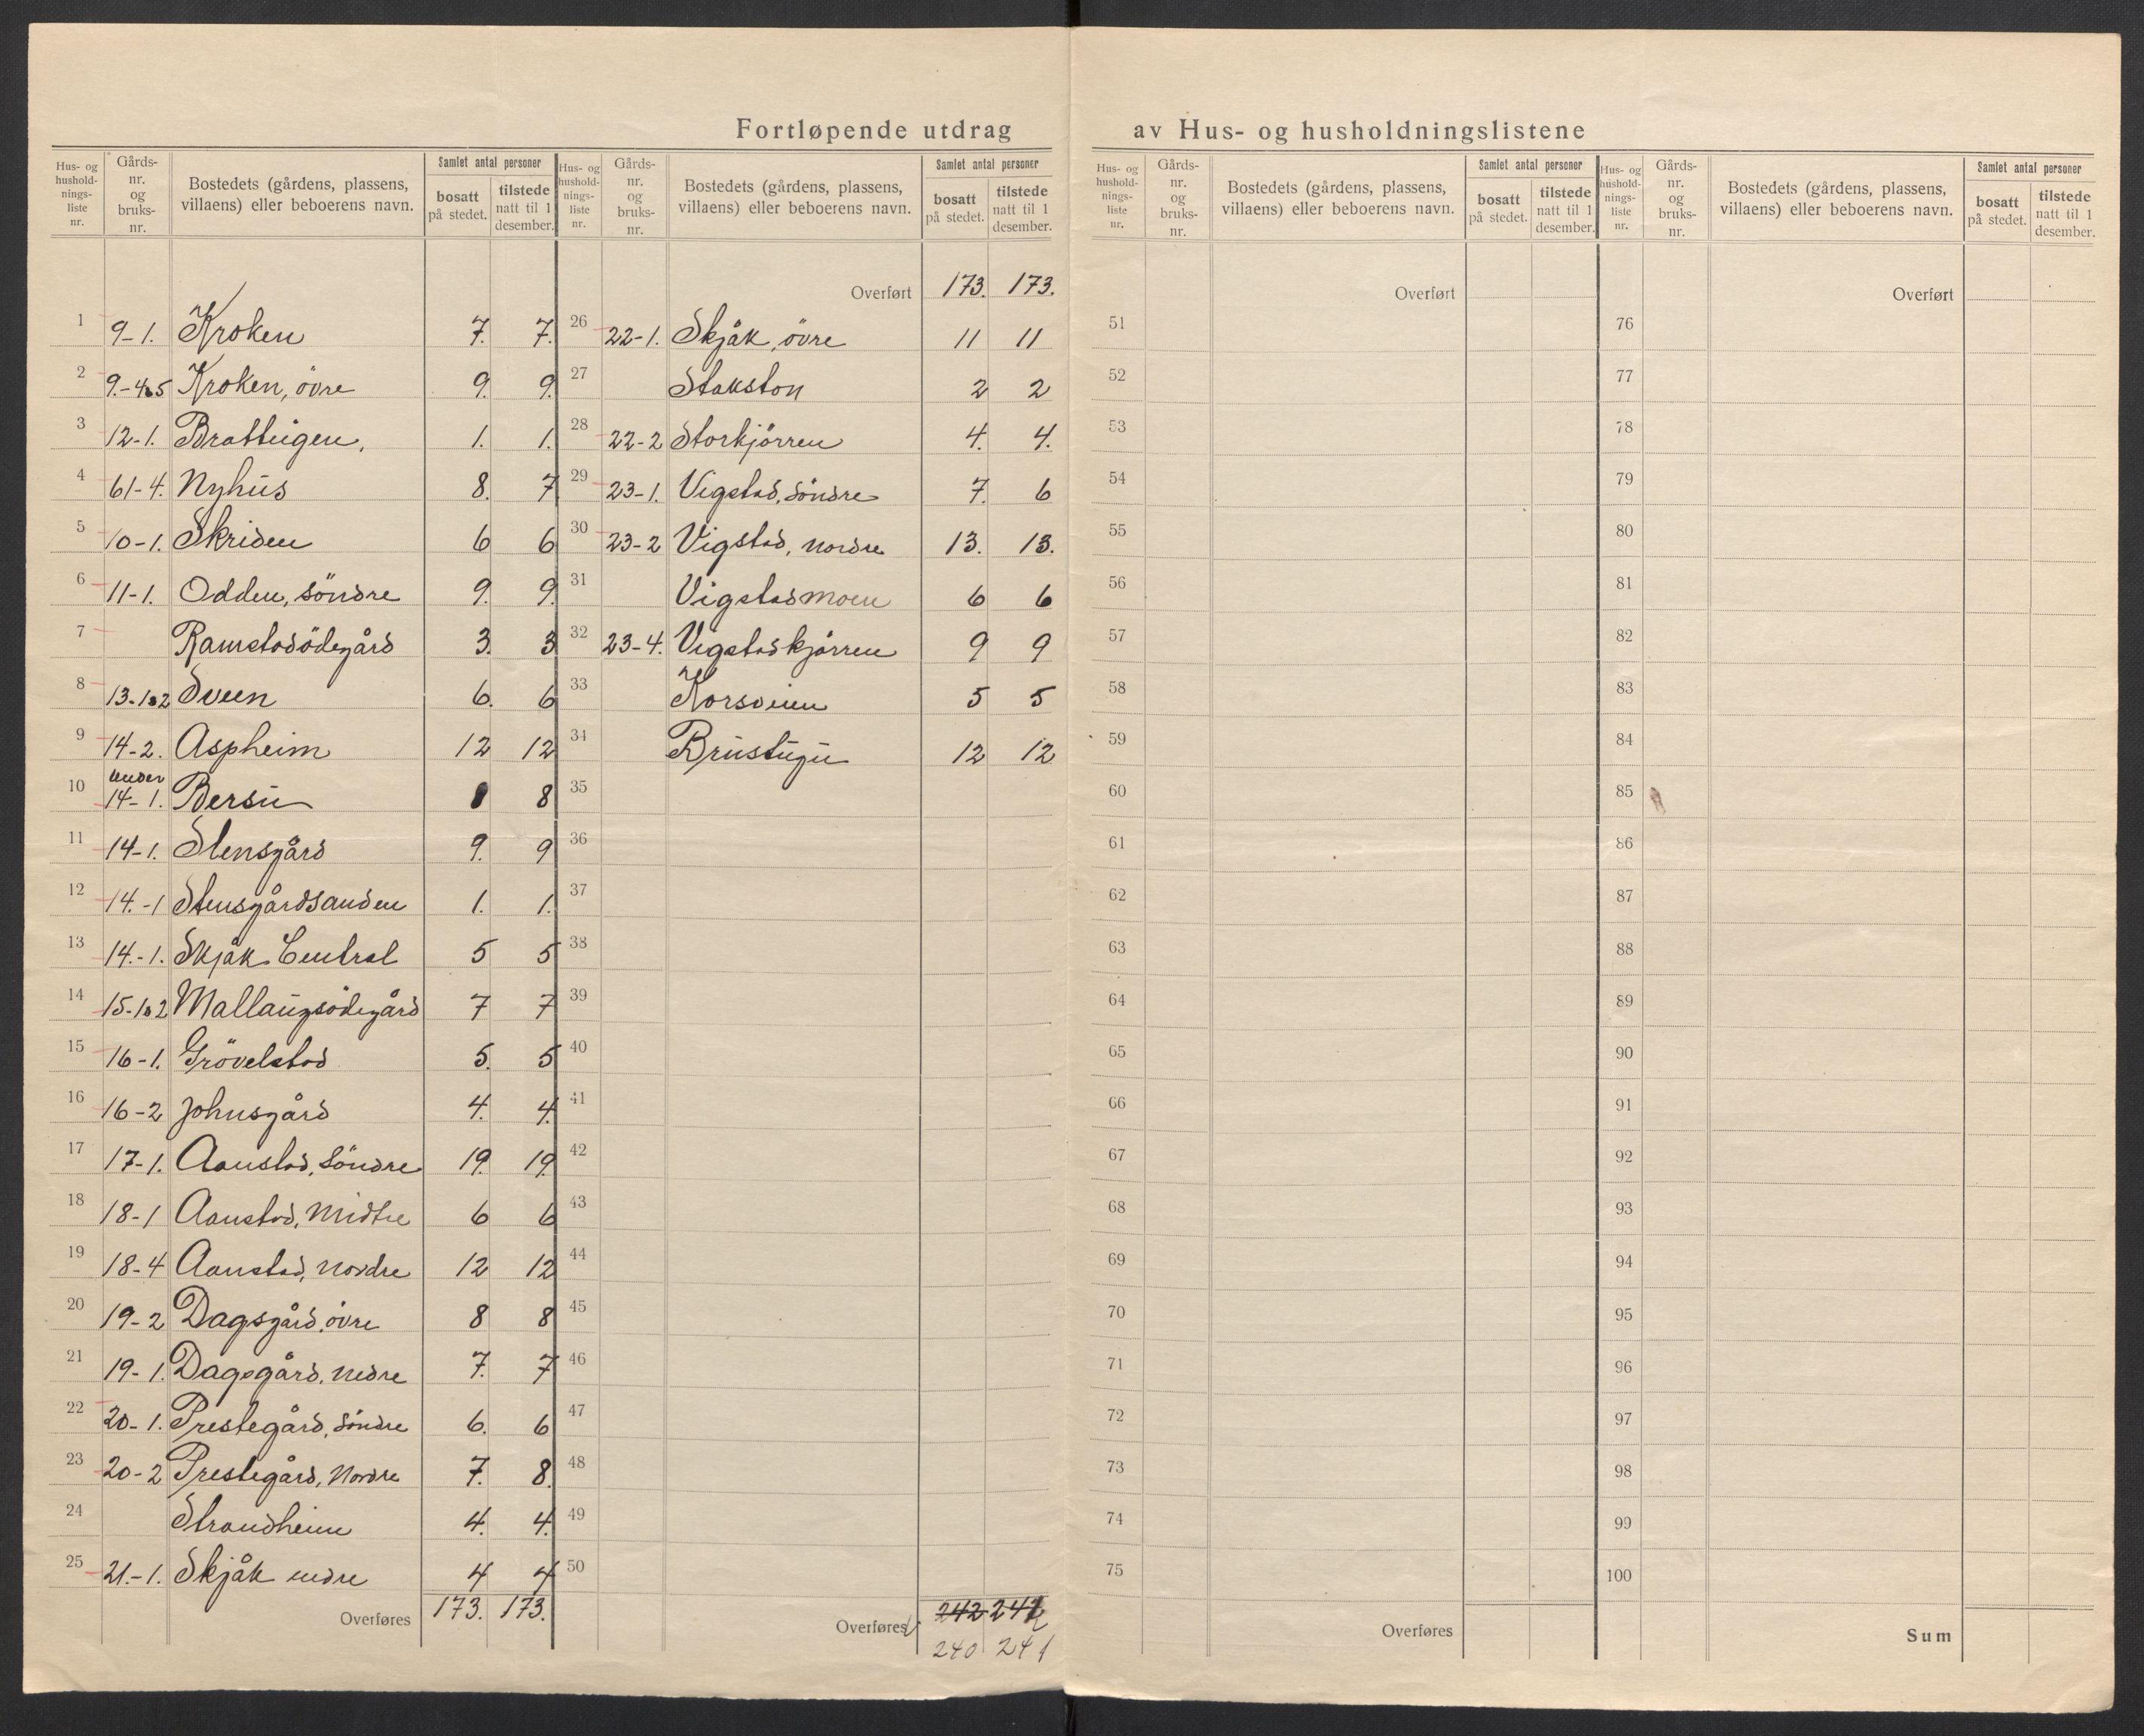 Fortløpende utdrag av Hus- og husholdningslistene
Hus- og husholdnings-liste nr. | Gårds-nr. og bruks-nr. | Bostedets (gårdens, plassens, villaens) eller beboerens navn. | Samlet antal personer | bosatt på stedet. | tilstede natt til 1 desember.
1 9-1. Kroken 7. 7.
2 9.-4&5 Kroken, övre 9. 9.
3 12-1. Bratteigen, 1. 1.
4 61-4. Nyhus 8. 7
5 10-1. Skriden 6 6
6 11-1. Odden, söndre 9. 9.
7 Ramstadödegård 3. 3
8 13-1&2 Sveen 6. 6
9 14-2. Aspheim 12 12
10 under 14-1. Bersu 8 8
11 14-1. Stensgård 9. 9
12 14.-1 Stensgårdsanden 1. 1.
13 14.-1. Skjåk Central 5 5
14 15-1&2 Mallaugsödegård 7 7
15 16-1. Grövelstad 5. 5
16 16-2 Johnsgård 4. 4.
17 17-1. Aanstad, söndre 19. 19.
18 18-1 Aanstad, midtre 6 6
19 18-4 Aanstad, nordre 12 12
20 19-2 Dagsgård, övre 8 8
21 19-1. Dagsgård, nedre 7. 7
22 20-1. Prestegård, söndre 6. 6
23 20-2 Prestegård, nordre 7. 8.
24 Strandheim 4. 4.
25 21.-1. Skjåk nedre 4 4
Overføres 173. 173.
Hus- og husholdnings-liste nr. | Gårds-nr. og bruks-nr. | Bostedets (gårdens, plassens, villaens) eller beboerens navn. | Samlet antal personer | bosatt på stedet. | tilstede natt til 1 desember.
Overført 173. 173.
26 22-1. Skjåk, övre 11 11
27 Stakston 2 2
28 22-2 Storkjörren 4. 4.
29 23-1. Vigstad, söndre 7. 6
30 23-2 Vigstad, nordre 13. 13.
31 Vigstadmoen 6 6
32 23-4. Vigstadkjörren 9 9
33 Korsveien 5 5
34 Brustugu 12 12
35
36
37
38
39
40
41
42
43
44
45
46
47
48
49
50
Overføres 242 242
240 241
Hus- og husholdnings-liste nr. | Gårds-nr. og bruks-nr. | Bostedets (gårdens, plassens, villaens) eller beboerens navn. | Samlet antal personer | bosatt på stedet. | tilstede natt til 1 desember.
Overført
51
52
53
54
55
56
57
58
59
60
61
62
63
64
65
66
67
68
69
70
71
72
73
74
75
Overføres
Hus- og husholdnings-liste nr. | Gårds-nr. og bruks-nr. | Bostedets (gårdens, plassens, villaens) eller beboerens navn. | Samlet antal personer | bosatt på stedet. | tilstede natt til 1 desember.
Overført
76
77
78
79
80
81
82
83
84
85
86
87
88
89
90
91
92
93
94
95
96
97
98
99
100
Sum